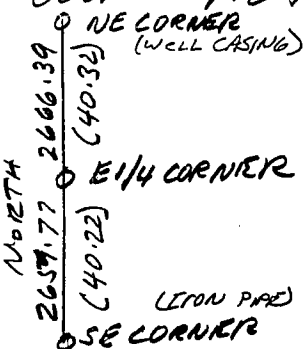 NE CORNER
(WELL CASING)
2666.39
(40.32)
E1/4 CORNER
NORTH
2659.77
(40.22)
(IRON PIPE)
SE CORNER